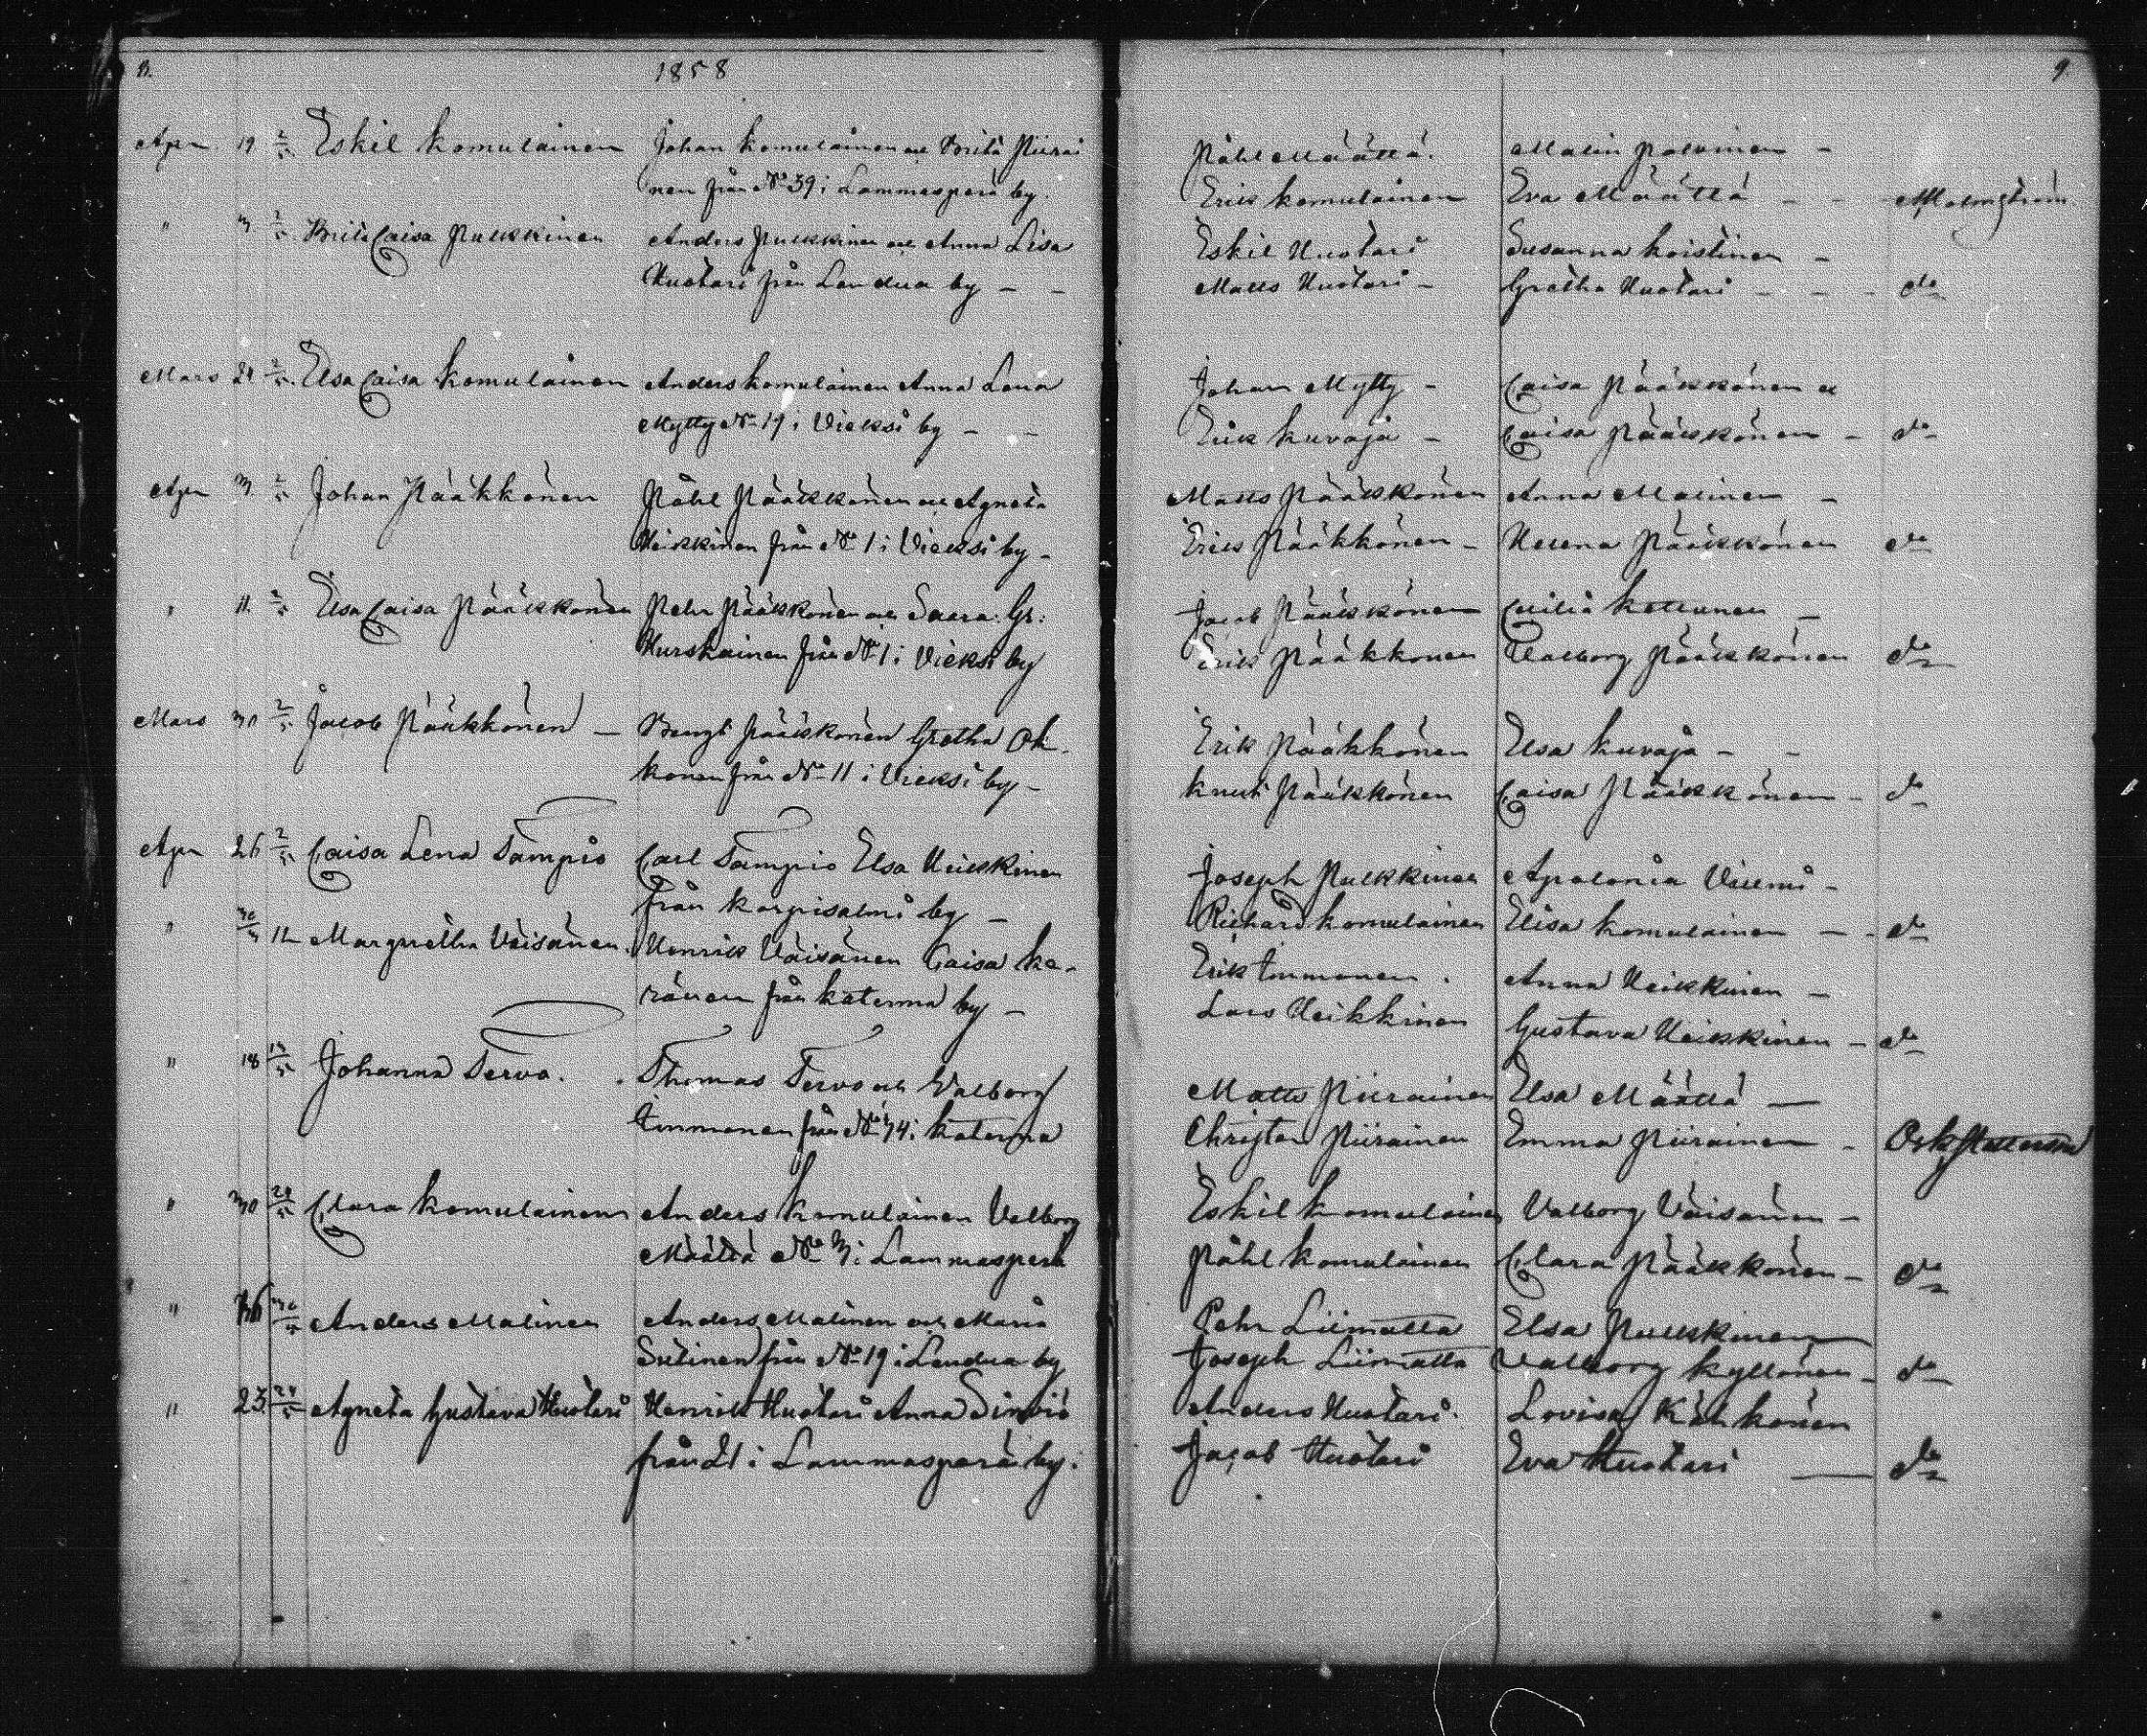 8. 1858
Apr 19 2/5 Eskil Komulainen Johan Komulainen och Brita Piirai
nen från No 39 i Lammasperä by.
" 3 2/5 Brita Caisa Pulkkinen Anders Pulkkinen och Anna Lisa
Huotari från Lendua by - -
Mars 24 2/5 Elsa Caisa Komulainen Anders Komulainen Anna Lena
Mytty No 19 i Vieksi by - -
Apr 3 2/5 Johan Pääkkönen Påhl Pääkkönen och Agneta
Heikkinen från No 1 i Vieksi by -
" 11. 2/5 Elsa Caisa Pääkkönen Pehr Pääkkönen och Saara Gr:
Hurskainen från No 1 i Vieksi by
Mars 30 2/5 Jacob Pääkkönen - Bengt Pääkkönen Gretha Ok-
konen från No 11 i Vieksi by -
Apr 26 2/5 Caisa Lena Tampio Carl Tampio Elsa Heikkinen
från Korpisalmi by -
" 12 Margretha Väisänen Henrik Väisänen Caisa Ke-
ränen från Katerma by -
" 18 13/5 Johanna Tervo. Thomas Tervo och Valborg
Immonen från No 14 i Katerma
" 30 24/5 Clara Komulainen Anders Komulainen Valborg
Määttä No 3 i Lammasperä
" 30/5 Anders Malinen Anders Malinen och Maria
Sutinen från No 19 i Lendua by
" 23 24/5 Agneta Gustava Huotari Henrik Huotari Anna Sirviö
från 21 i Lammasperä by.
9
Påhl Määttä. Malin Polvinen -
Erik Komulainen Eva Määttä - - Malmström
Eskil Huotari Susanna Koistinen -
Matts Huotari - Gretha Huotari - - - do
Johan Mytty - Caisa Pääkkönen
Erik Kuvaja - Caisa Pääkkönen - do
Matts Pääkkönen Anna Malinen -
Erik Pääkkönen - Helena Pääkkönen do
Jacob Pääkkönen Cecilia Kettunen -
Erik Pääkkönen Valborg Pääkkönen do
Erik Pääkkönen Elsa Kuvaja - -
Knut Pääkkönen Caisa Pääkkönen - do
Joseph Pulkkinen Apolonia Villmi -
Richard Komulainen Elisa Komulainen - - do
Erik Immonen. Anna Heikkinen -
Lars Heikkinen Gustava Heikkinen - do
Matts Piirainen Elsa Määttä -
Christer Piirainen Emma Piirainen -
Eskil Komulainen Valborg Väisänen -
Påhl Komulainen Clara Pääkkönen - do
Pehr Liimatta Elsa Pulkkinen
Joseph Liimatta Valborg Kyllönen - do
Anders Huotari. Lovisa Kähkönen
Jacob Huotari Eva Huotari - do